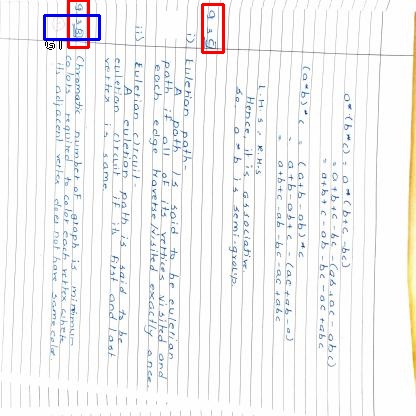 a*(b*c) = a*(b+c-bc)
= a+b+c-bc-(ab+ac-abc)
= a+b+c-ab-bc-ac+abc
(a*b)*c = (a+b-ab)*c
= a+b+c-ab-bc-ac+abc
L.H.S = R.H.S
Hence, it is associative.
So, a*b is semi-group.
i) Eulerian path-
A path is said to be eulerian
path if all of its vertices visited and
each edge traverse/visited exactly once.
ii) Eulerian circuit-
A eulerian path is said to be
eulerian circuit if its first and last
vertex is same.
Chromatic number of graph is minimum
colors required to color each vertex where
its adjacent vertex does not have same color.